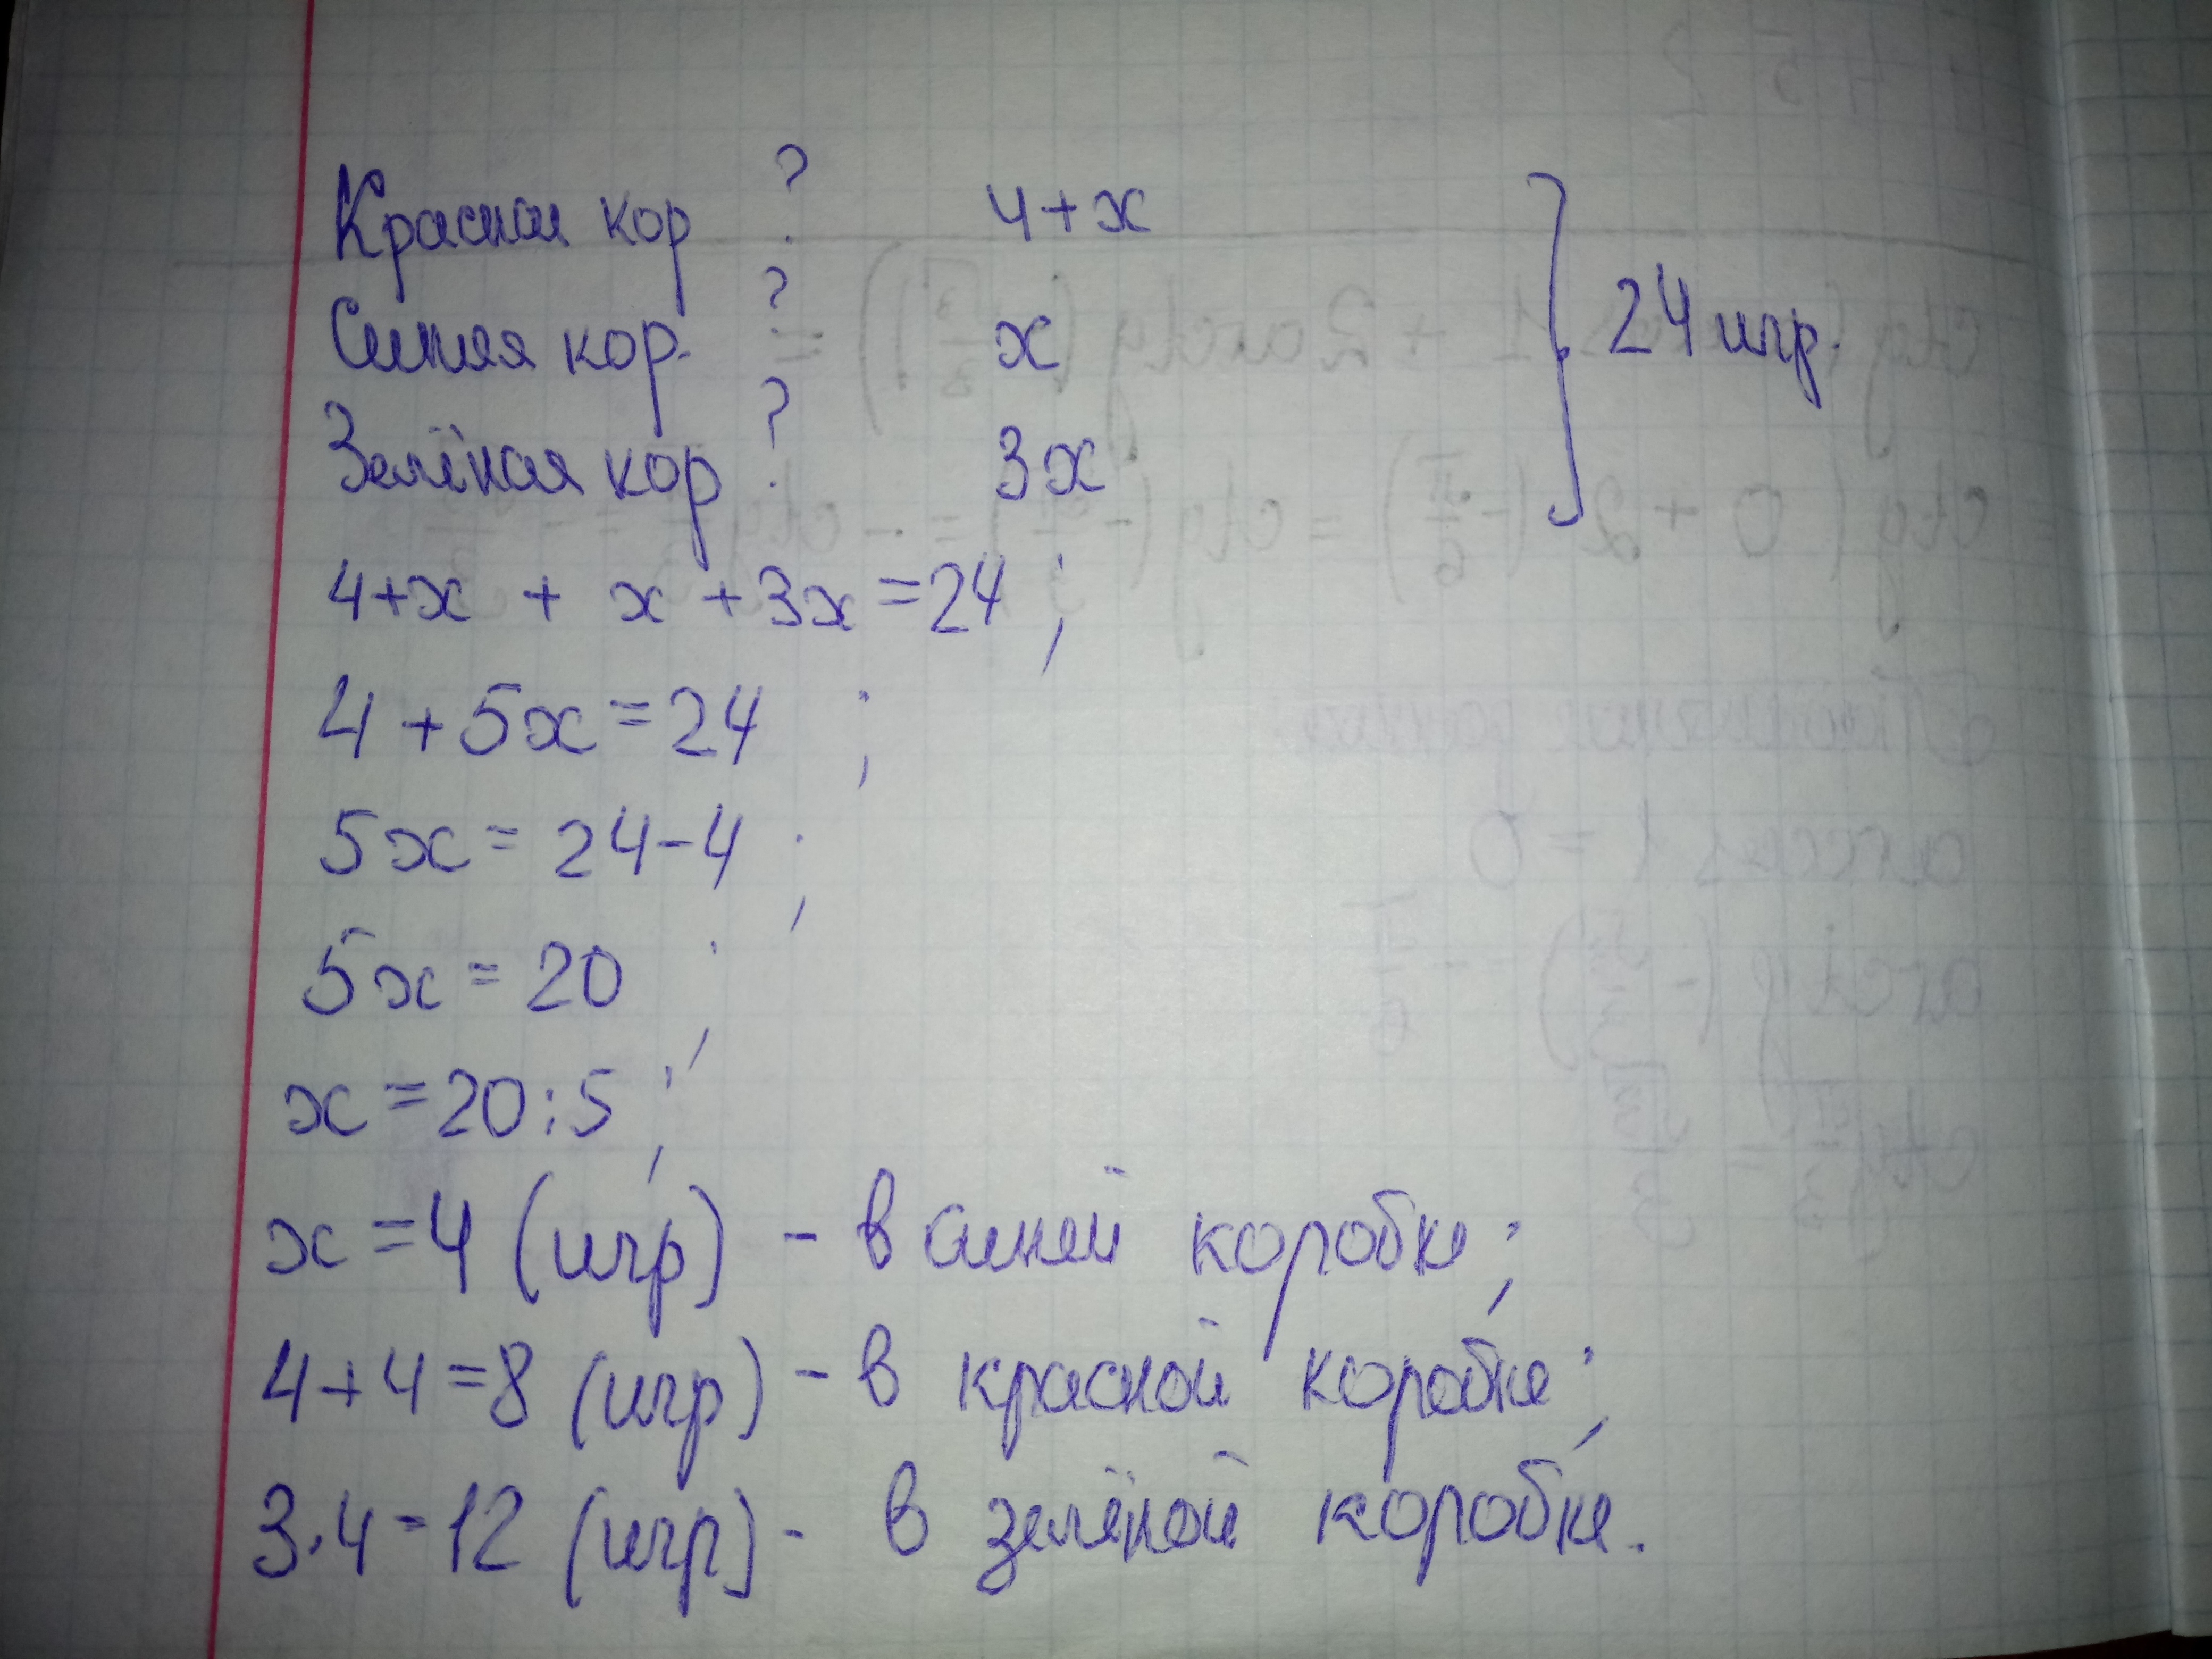 Красная кор ? 4+x
Синяя кор. ? x
Зелёная кор ? 3x
24 игр.
4+x + x +3x =24 ;
4 + 5x = 24 ;
5x = 24-4 ;
5x = 20 ;
x = 20:5 ;
x = 4 (игр) - в синей коробке;
4+4=8 (игр) - в красной коробке;
3·4=12 (игр) - в зелёной коробке.